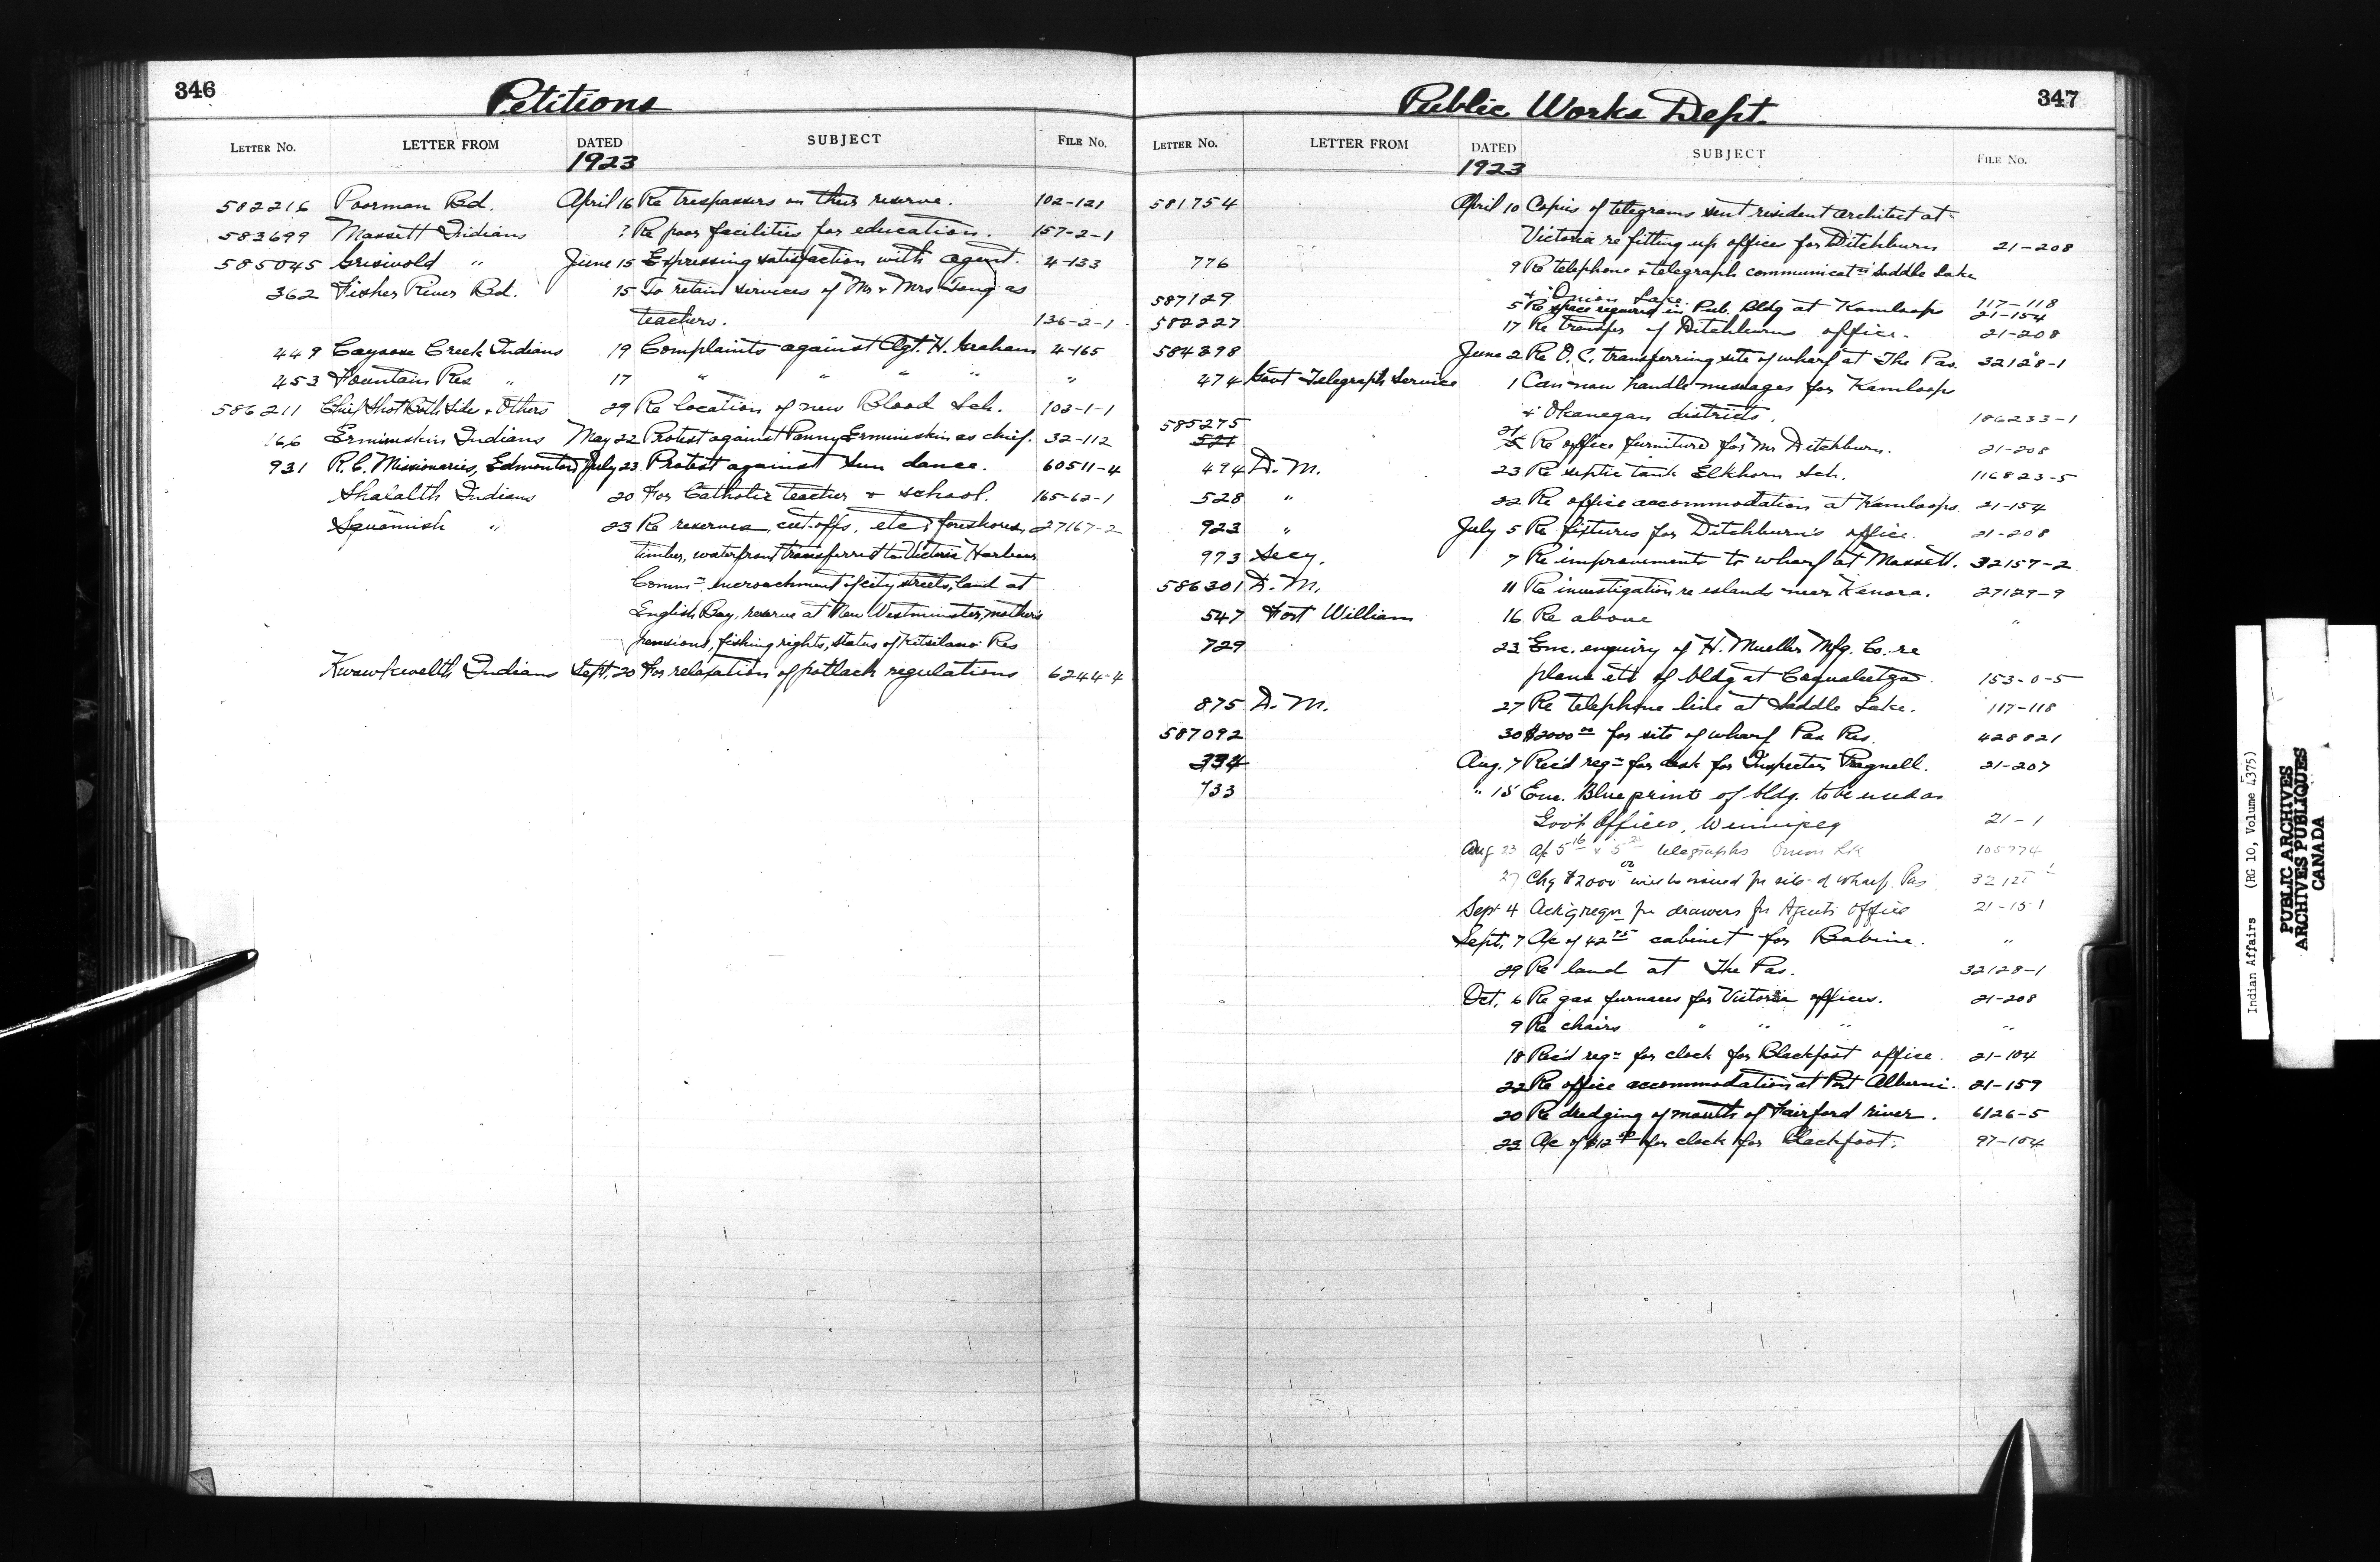 346
Petitions
LETTER No. LETTER FROM DATED SUBJECT FILE No.
1923
582216 Poorman Bd. April 16 Re trespassers on their reserve. 102-121
583699 Massett Indians ? Re poor facilities for education. 157-2-1
585045 Griswold " June 15 Expressing satisfaction with agent. 4-133
362 Fisher River Bd. 15 To retain services of Mr & Mrs as
teachers. 136-2-1
449 Cayoose Creek Indians 19 Complaints against Agt. H. Graham 4-165
453 Fountain Res " 17 " " " " "
586211 Chief Shot Both Sides & Others 29 Re location of new Blood Sch. 103-1-1
166 Ermineskin Indians May 22 Protest against Panny Ermineskin as chief. 32-112
931 R.C. Missionaries, Edmonton July 23 Protest against Sun dance. 60511-4
Shalalth Indians 20 For Catholic teacher & school. 165-62-1
Squamish " 23 Re reserves, cut-offs, etc; foreshores, 27167-2
timber, waterfront transferred to Victoria Harbour
Commn encroachment of city streets, land at
English Bay, reserve at New Westminster, mother's
pensions, fishing rights, status of Kitsilano Res
Kwawkwelth Indians Sept. 20 For relaxation of potlach regulations 6244-4
Public Works Dept.
347
LETTER No. LETTER FROM DATED SUBJECT FILE No.
1923
581754 April 10 Copies of telegrams sent resident architect at
Victoria re fitting up offices for Ditchburn 21-208
776 9 Re telephone & telegraph communicatn Saddle Lake
& Onion Lake. 117-118
587129 5 Re space required in Pub. Bldg at Kamloops 21-154
582227 17 Re transfer of Ditchburn's office. 21-208
584898 June 2 Re O.C. transferring site of wharf at The Pas. 32128-1
474 Govt Telegraph Service 1 Can now handle messages for Kamloops
& Okanegan districts. 186233-1
585275
521 Re office furniture for Mr Ditchburn. 21-208
494 D.M. 23 Re septic tank Elkhorn Sch. 116823-5
528 " 22 Re office accommodation at Kamloops. 21-154
923 " July 5 Re fixtures for Ditchburn's office. 21-208
973 Secy. 7 Re improvements to wharf at Massett. 32157-2
586301 D.M. 11 Re investigation re islands near Kenora. 27129-9
547 Fort William 16 Re above "
729 23 Enc. enquiry of H. Mueller Mfg. Co. re
plans etc of bldg at Coqualeetza 153-0-5
875 D.M. 27 Re telephone line at Saddle Lake. 117-118
587092 30 $2000 00 for site of wharf Pas Res. 428821
334 Aug. 7 Rec'd reqn for desk for Inspector Pragnell. 21-207
733 " 15 Enc. Blue print of bldg. to be used as
Govt Offices, Winnipeg 21-1
Aug 23 A/c 5 16 & 5 telegraphs Onion Lk 105774
27 Chq $2000 00 will be issued for site of wharf, Pas
Sept 4 Ack'g reqn for drawers for Agents Office 21-151
Sept. 7 A/c of 42 75 cabinet for Babine. "
29 Re land at The Pas. 32128-1
Oct. 6 Re gas furnaces for Victoria offices. 21-208
9 Re chairs " " " "
18 Rec'd reqn for clock for Blackfoot office. 21-104
22 Re office accommodation at Port Alberni. 21-159
20 Re dredging of mouth of Fairford river. 6126-5
23 A/c of $12 for clock for Blackfoot. 97-104
Indian Affairs (RG 10, Volume 4375)
PUBLIC ARCHIVES
ARCHIVES PUBLIQUES
CANADA